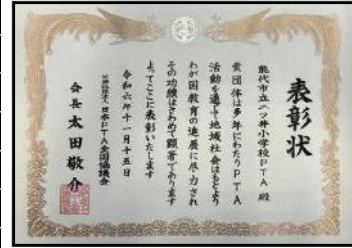 表彰状
能代市立二ツ井小学校PTA 殿
貴団体は多年にわたりPTA
活動を通して地域社会はもとより
わが国教育の進展に尽力され
その功績はきわめて顕著であります
よってここに表彰いたします
令和六年十一月十五日
公益社団法人 日本PTA全国協議会
会長 太田敬介